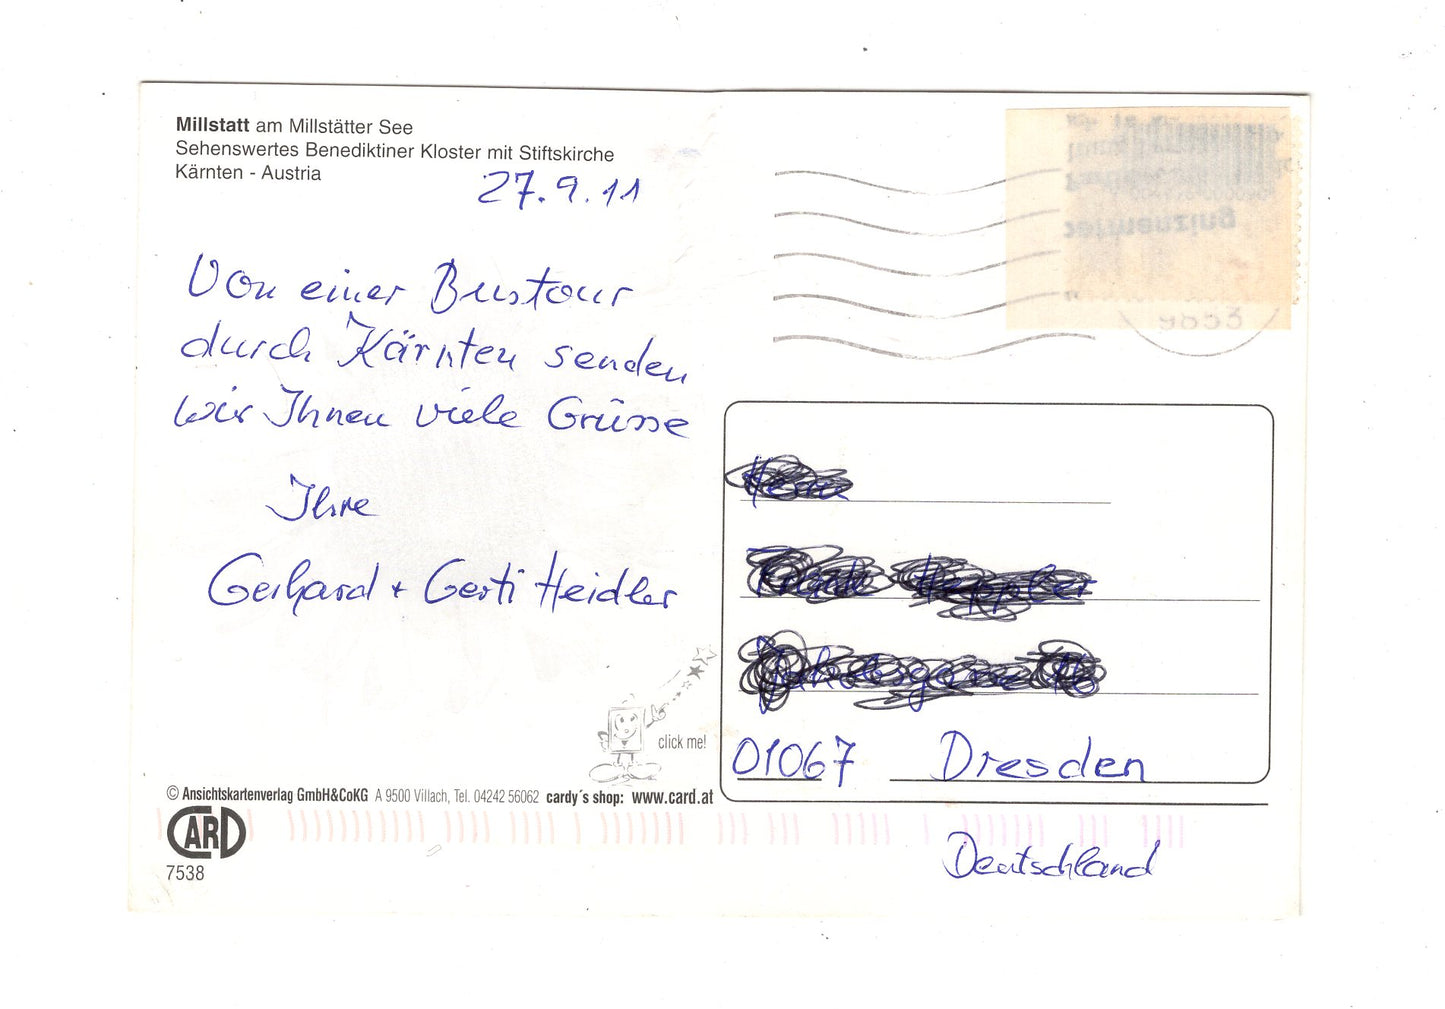 Millstatt am Millstätter See
Sehenswertes Benediktiner Kloster mit Stiftskirche
Kärnten - Austria
27.9.11
Von einer Bustour
durch Kärnten senden
wir Ihnen viele Grüsse
Ihre
Gerhard + Gerti Heidler
click me!
© Ansichtskartenverlag GmbH&CoKG A 9500 Villach, Tel. 04242 56062 cardy´s shop: www.card.at
CARD
7538
9853
01067 Dresden
Deutschland